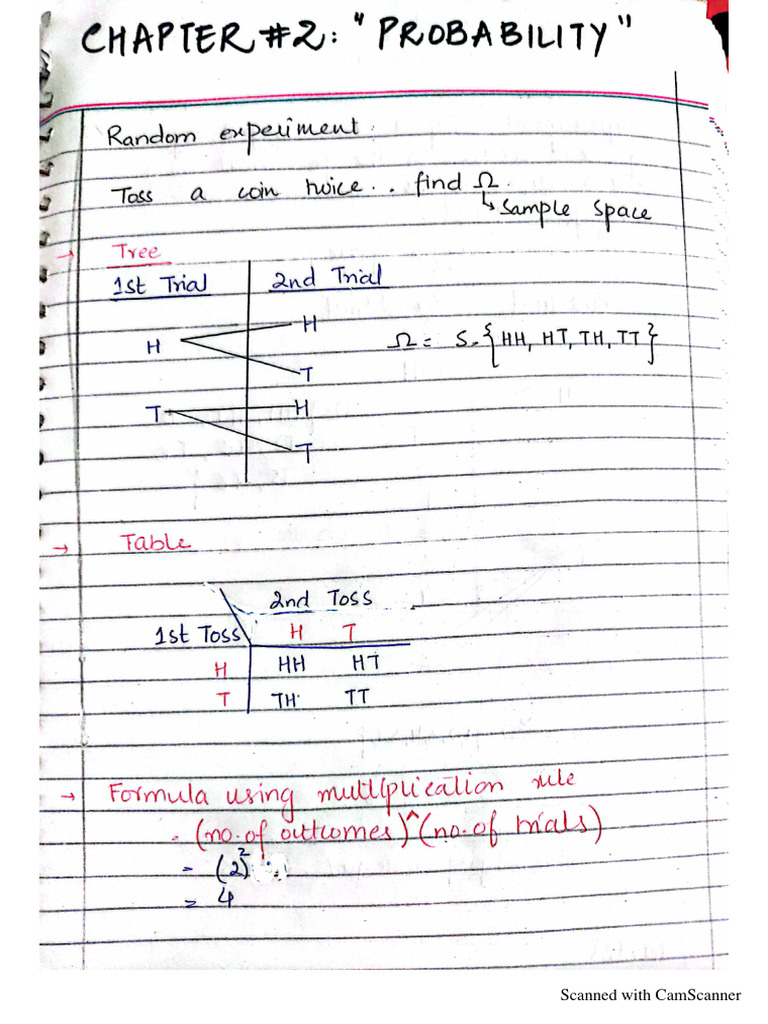 CHAPTER #2: "PROBABILITY"
Random experiment:
Toss a coin twice.. find Ω.
↳ Sample space
→ Tree
1st Trial 2nd Trial
H
H
Ω = S = {HH, HT, TH, TT}
T
T H
T
→ Table
2nd Toss
1st Toss H T
H HH HT
T TH TT
→ Formula using multiplication rule
= (no. of outcomes)^(no. of trials)
= (2)²
= 4
Scanned with CamScanner